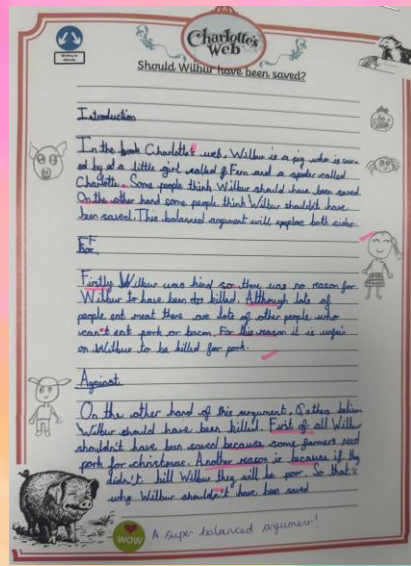 Charlotte's
Web
Should Wilbur have been saved?
Introduction
In the book Charlotte's web, Wilbur is a pig who is saved by a little girl called Fern and a spider called
Charlotte. Some people think Wilbur should have been saved.
On the other hand some people think Wilbur shouldn't have
been saved. This balanced argument will explore both sides.
For
Firstly Wilbur was kind so there was no reason for
Wilbur to have been killed. Although lots of
people eat meat there are lots of other people who
can't eat pork or bacon. For this reason it is unfair
on Wilbur to be killed for pork.
Against
On the other hand of this argument, believe
Wilbur should have been killed. First of all Wilbur
shouldn't have been saved because some farmers need
pork for christmas. Another reason is because if they
didn't kill Wilbur they will be poor. So that's
why Wilbur shouldn't have been saved
WOW
A super balanced argument!